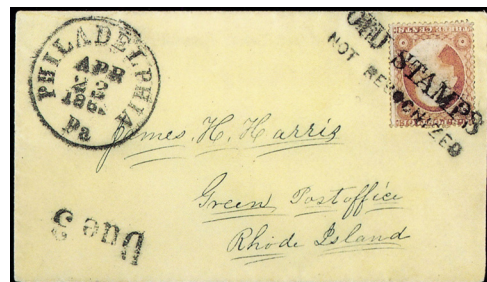 PHILADELPHIA
APR
22
Pa
OLD STAMPS
NOT RECOGNIZED
James. H. Harris
Green, Postoffice
Rhode Island
Due 3